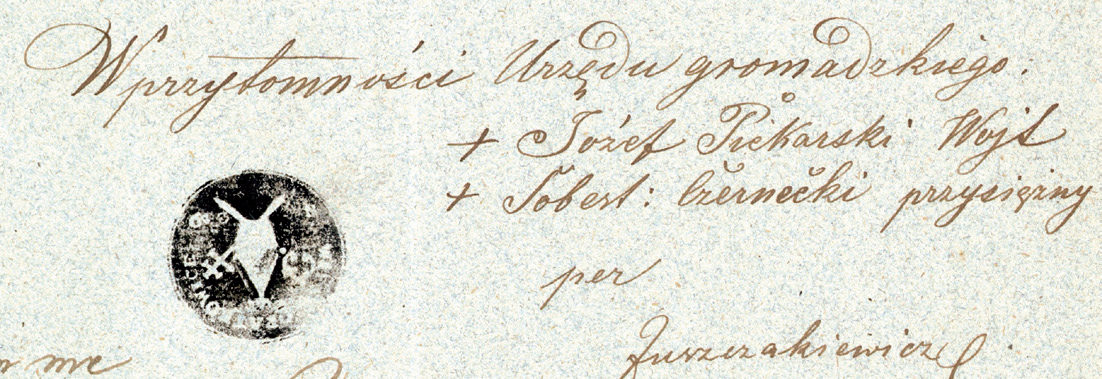 W przytomności Urzędu gromadzkiego.
+ Józef Piekarski Wojt
+ Sobest: Czernecki przysiężny
per
Juszczakiewicz